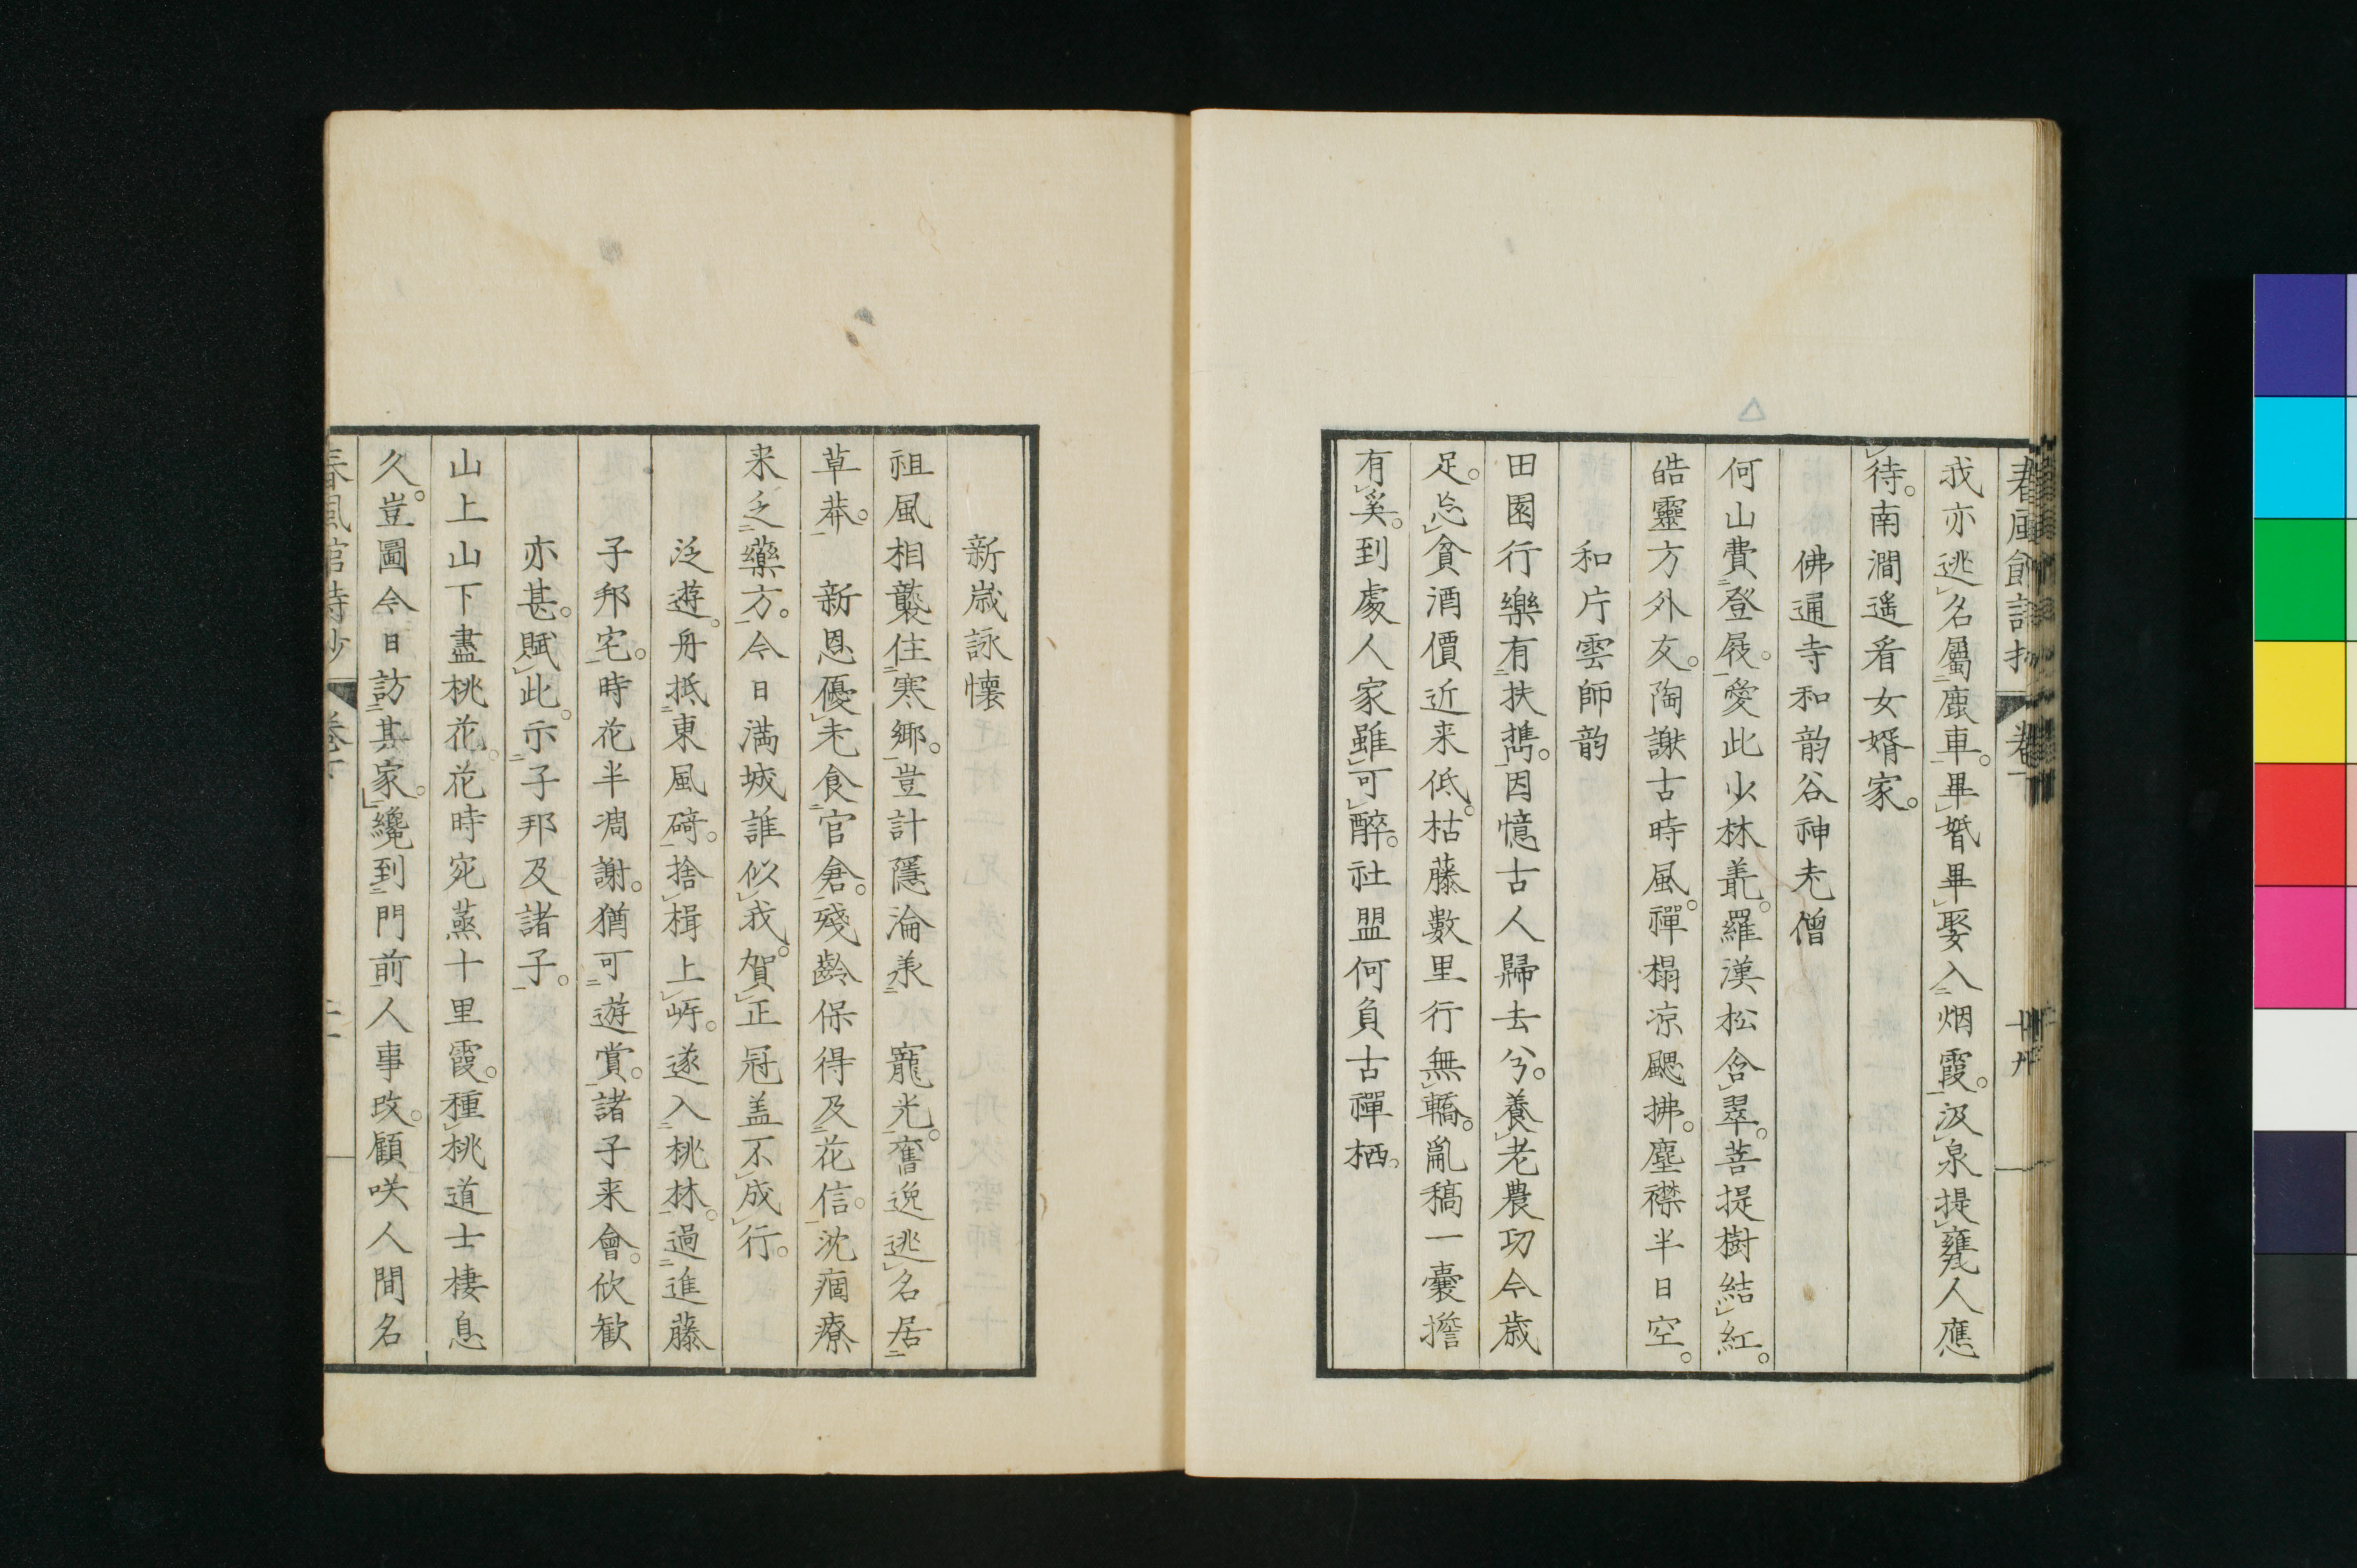 我亦逃名屬鹿車。畢婚畢娶入烟霞。汲泉提甕人應
待。南澗遥看女婿家。
佛通寺和韵谷神老僧
何山費登屐。愛此少林叢。羅漢松含翠。菩提樹結紅。
皓靈方外友。陶謝古時風。禪榻凉颸拂。塵襟半日空。
和片雲師韵
田園行樂有扶携。因憶古人歸去兮。養老農功今歳
足。忘貧酒價近来低。枯藤數里行無轎。亂稿一囊擔
有奚。到處人家雖可醉。社盟何負古禪栖。
新歳詠懐
祖風相襲住寒鄉。豈計隱淪羕寵光。奮逸逃名居
草莽。新恩優老食官倉。殘齡保得及花信。沈痼療
来乏藥方。今日満城誰似我。賀正冠盖不成行。
泛遊。舟抵東風碕。捨楫上岸。遂入桃林。過進藤
子邦宅。時花半凋謝。猶可遊賞。諸子来會。欣歓
亦甚。賦此。示子邦及諸子。
山上山下盡桃花。花時宛蒸十里霞。種桃道士棲息
久。豈圖今日訪其家。纔到門前人事改。顧咲人間名
春風館詩抄